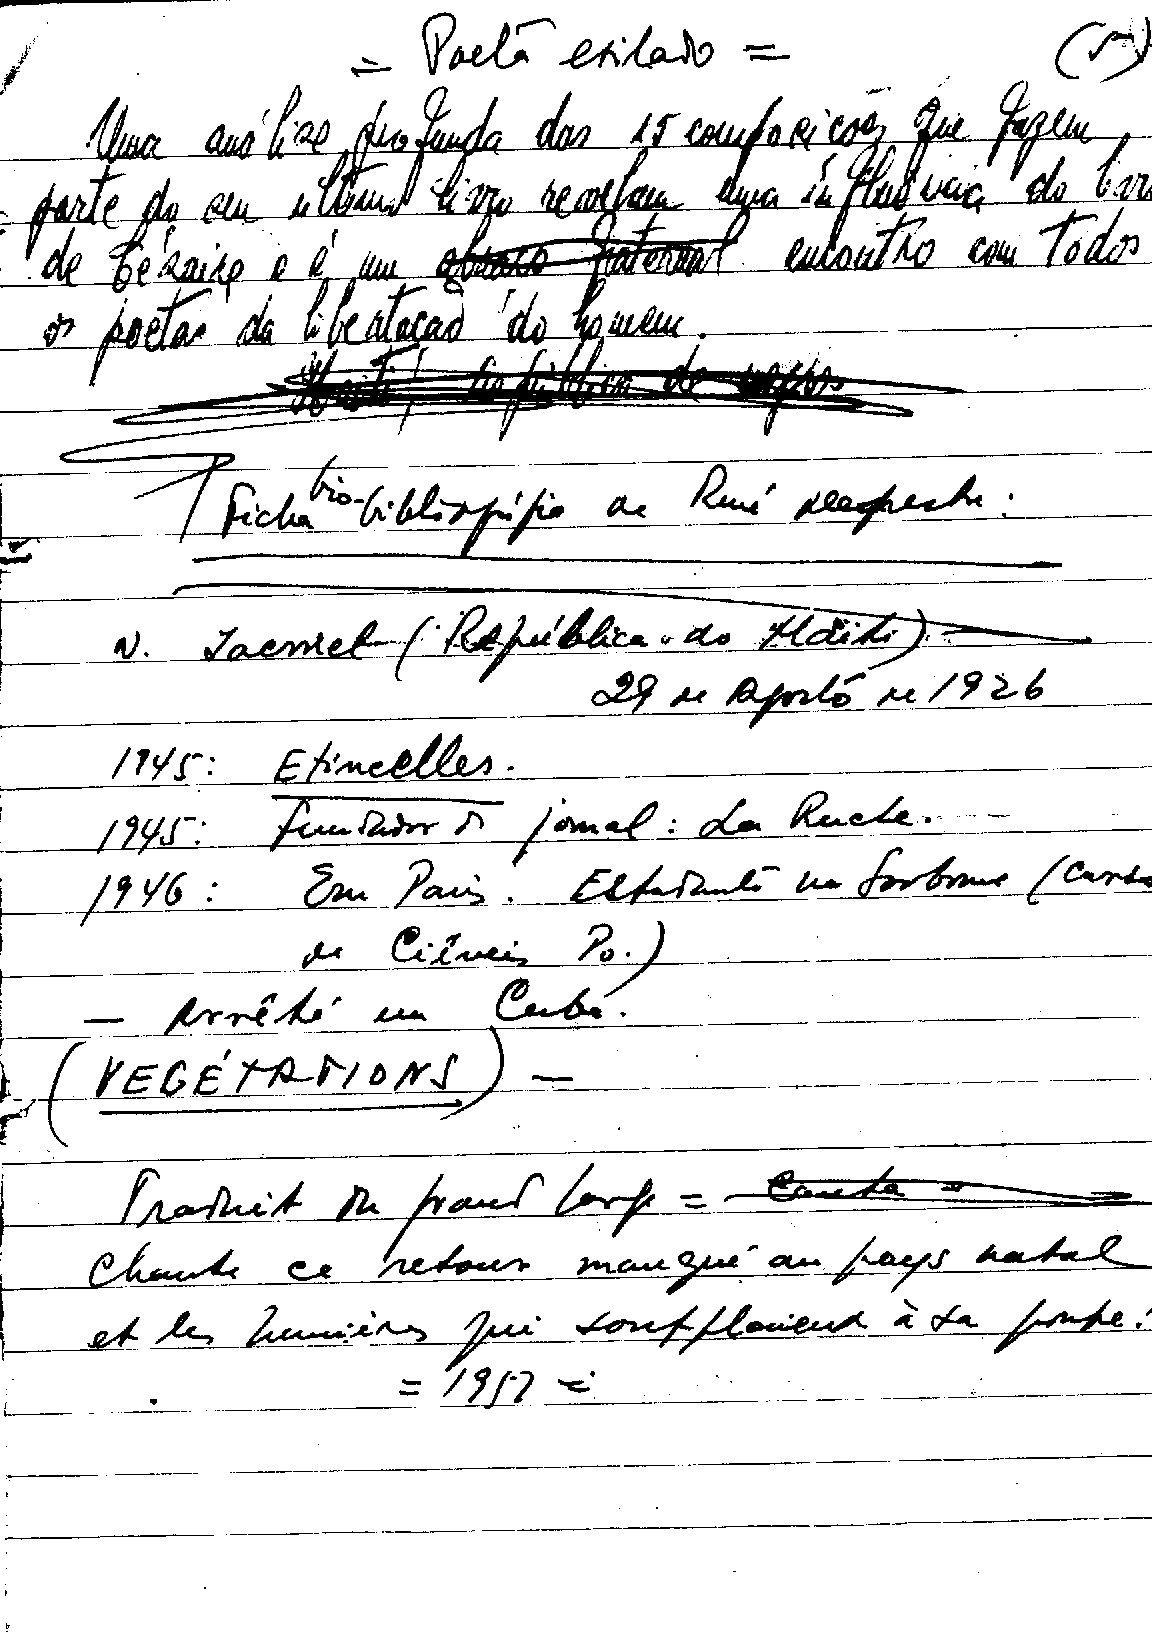 = Poeta exilado = (5)
Uma análise profunda das 15 composições que fazem
parte do seu último livro revelam uma influência do livro
de Césaire e é um abraço fraternal encontro com todos
os poetas da libertação do homem.
Haiti, república de negros
Ficha bio-bibliográfica de René Depestre:
N. Jacmel (República do Haiti).
29 de Agosto de 1926
1945: Etincelles.
1945: Fundador do jornal: La Ruche.
1946: Em Paris. Estudante na Sorbonne (curso
de Ciências Po.)
— Arrêté en Cuba.
(VEGÉTATIONS) —
Traduit du grand large =
Chante ce retour manqué au pays natal
et les lumières qui à sa porte:
= 1952 =